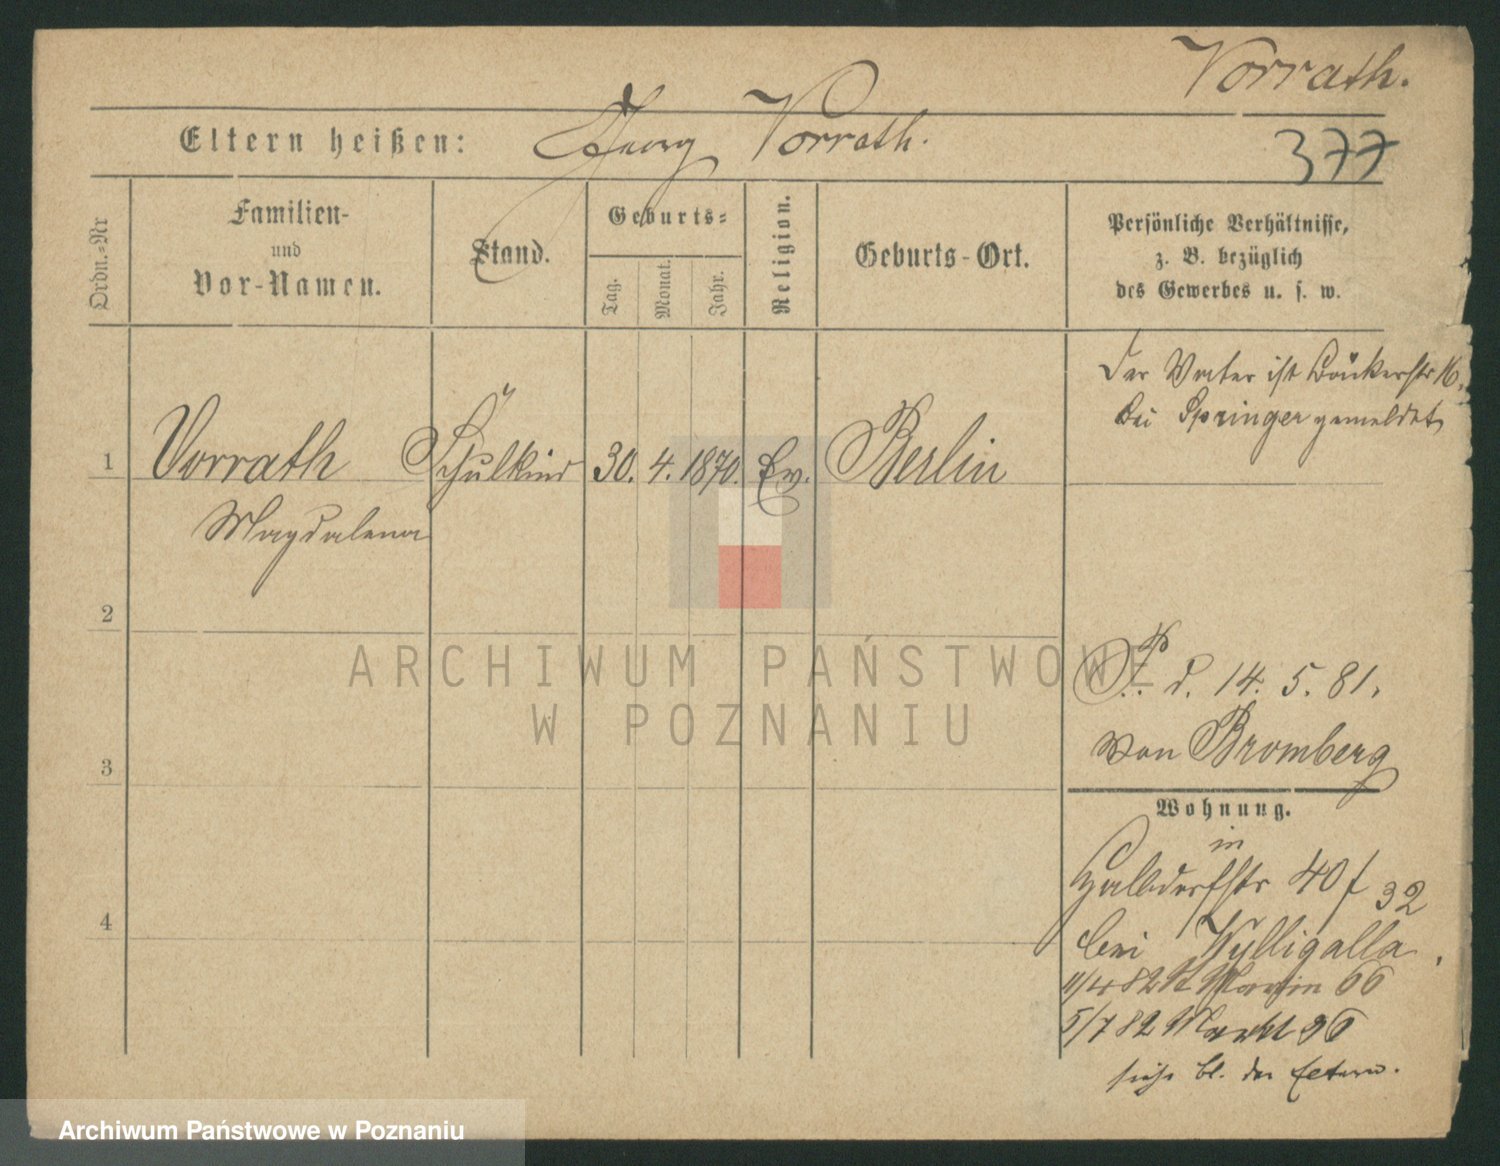 Vorrath.
377
Eltern heißen: Georg Vorrath.
Ordn.=Nr
Familien-
und
Vor-Namen.
Stand.
Geburts=
Tag.
Monat.
Jahr.
Religion.
Geburts-Ort.
Persönliche Verhältnisse,
z. B. bezüglich
des Gewerbes u. s. w.
Der Vater ist Bäckerstr 16.
bei Springer gemeldet
1 Vorrath Schulkind 30. 4. 1870. Ev. Berlin
Magdalena
2
ARCHIWUM PAŃSTWOWE
W POZNANIU
P. d. 14. 5. 81.
von Bromberg
3
Wohnung.
in
Halbdorfstr 40 f 32
bei Wylligalla
4
11/4 82 St Martin 66
5/7 82 Markt 96
siehe bl. der Eltern.
Archiwum Państwowe w Poznaniu